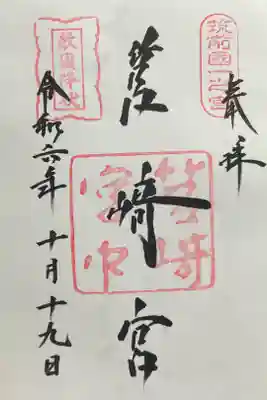 筑前國一之宮
奉拝
筥崎宮
筥崎
宮印
敵國降伏
令和六年 十月十九日